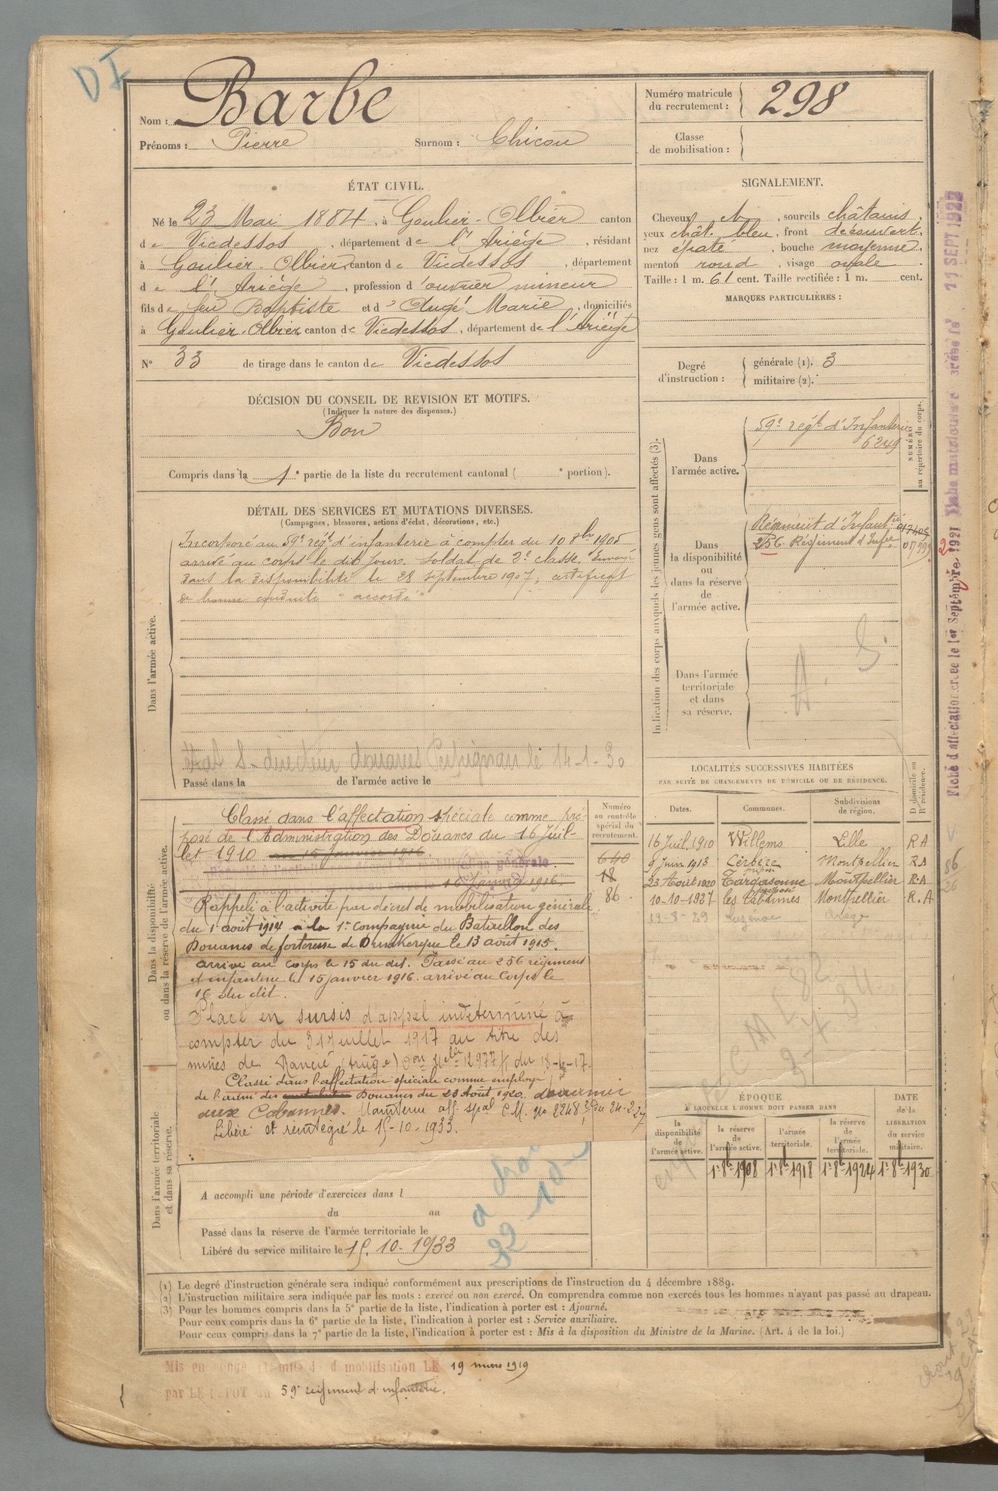 DI
Nom : Barbe
Prénoms : Pierre Surnom : Chicou
Numéro matricule du recrutement : 298
Classe de mobilisation :
ÉTAT CIVIL.
Né le 23 Mai 1884, à Goulier-Olbier canton
de Vicdessos, département de l'Ariège, résidant
à Goulier-Olbier canton de Vicdessos, département
de l'Ariège, profession d'ouvrier mineur
fils de feu Baptiste et d'Augé Marie, domiciliés
à Goulier-Olbier canton de Vicdessos, département de l'Ariège
N° 33 de tirage dans le canton de Vicdessos
SIGNALEMENT.
Cheveux ch, sourcils châtains.
yeux chât. bleu, front découvert.
nez épaté, bouche moyenne.
menton rond, visage ovale
Taille : 1 m. 61 cent. Taille rectifiée : 1 m. cent.
MARQUES PARTICULIÈRES :
Degré d'instruction : générale (1). 3
militaire (2).
DÉCISION DU CONSEIL DE REVISION ET MOTIFS.
(Indiquer la nature des dispenses.)
Bon
Compris dans la 1e partie de la liste du recrutement cantonal ( e portion).
DÉTAIL DES SERVICES ET MUTATIONS DIVERSES.
(Campagnes, blessures, actions d'éclat, décorations, etc.)
Dans l'armée active.
Incorporé au 59e régt d'infanterie à compter du 10 8bre 1905
arrivé au corps le dit jour, soldat de 2e classe. Envoyé
dans la disponibilité le 28 septembre 1907, certificat
de bonne conduite "accordé"
S-directeur douanes Perpignan le 14-1-30
Passé dans la de l'armée active le
Indication des corps auxquels les jeunes gens sont affectés (3).
NUMÉRO au répertoire du corps.
Dans l'armée active.
59e régt d'Infanterie
6249
Dans la disponibilité ou dans la réserve de l'armée active.
Régiment d'Infantie
256 Régiment d'Infie
Dans l'armée territoriale et dans sa réserve.
A S
LOCALITÉS SUCCESSIVES HABITÉES
PAR SUITE DE CHANGEMENTS DE DOMICILE OU DE RÉSIDENCE.
Dates. Communes. Subdivisions de région. D domicile ou R résidence.
16 Juil. 1910 Willems Lille R A
9 Juin 1913 Cerbère Montpellier RA
23 Août 1920 Targasonne Montpellier R.A
10-10-1927 les Cabannes Montpellier R.A
13-8-29 Luzenac Ariège
Dans la disponibilité ou dans la réserve de l'armée active.
Numéro au contrôle spécial du recrutement.
640
18
86
Classé dans l'affectation spéciale comme pré-
posé de l'Administration des Douanes du 16 Juil-
let 1910 au 15 janvier 1916.
Rappelé à l'activité par décret de mobilisation générale
du 1 août 1914 à la 1e compagnie du Bataillon des
Douanes de forteresse de Dunkerque le 13 août 1915.
arrivé au corps le 15 du dit. Passé au 256 régiment
d'infanterie le 15 janvier 1916. arrivé au Corps le
16 du dit.
Placé en sursis d'appel indéterminé à
compter du 31 Juillet 1917 au titre des
mines de Rancié (Ariège)
Classé dans l'affectation spéciale comme employé
de l'admon des Douanes du 23 Août 1920. douanier
aux Cabannes. Maintenu aff. spale C.M. No 2248 du 24-2-27
Libéré et réintégré le 15-10-1933.
Dans l'armée territoriale et dans sa réserve.
A accompli une période d'exercices dans l
du au
Passé dans la réserve de l'armée territoriale le
Libéré du service militaire le 15.10.1933
ÉPOQUE À LAQUELLE L'HOMME DOIT PASSER DANS
la disponibilité de l'armée active. la réserve de l'armée active. l'armée territoriale. la réserve de l'armée territoriale. DATE de la LIBÉRATION du service militaire.
1er 8bre 1908 1er 8bre 1918 1er 8bre 1924 1er 8bre 1930
(1) Le degré d'instruction générale sera indiqué conformément aux prescriptions de l'instruction du 4 décembre 1889.
(2) L'instruction militaire sera indiquée par les mots : exercé ou non exercé. On comprendra comme non exercés tous les hommes n'ayant pas passé au drapeau.
(3) Pour les hommes compris dans la 5e partie de la liste, l'indication à porter est : Ajourné.
Pour ceux compris dans la 6e partie de la liste, l'indication à porter est : Service auxiliaire.
Pour ceux compris dans la 7e partie de la liste, l'indication à porter est : Mis à la disposition du Ministre de la Marine. (Art. 4 de la loi.)
Mis en congé de démobilisation LE 19 mars 1919
par LE DEPOT du 59e régiment d'infanterie.
Fiche d'affectation créée le 1er Septembre 1921
Fiche matriculaire créée le 11 SEPT 1922